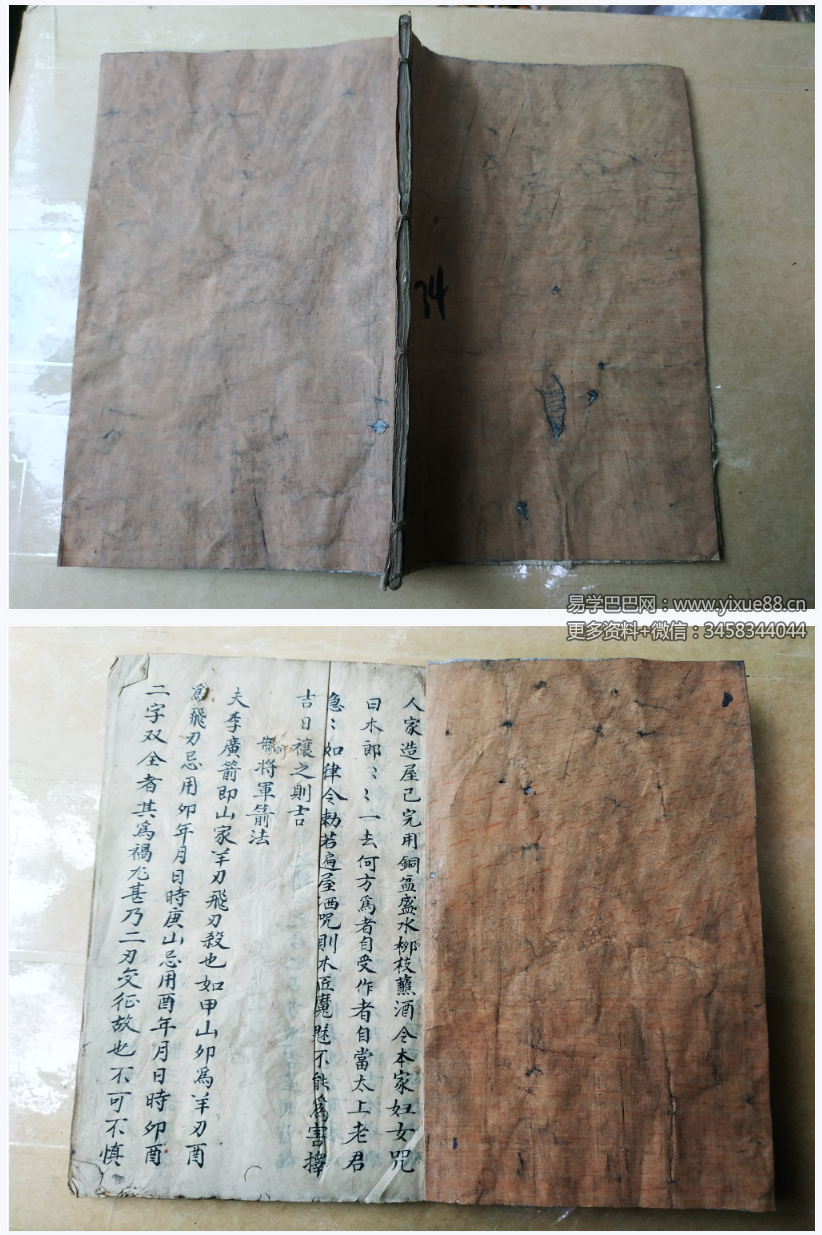 34
易学巴巴网：www.yixue88.cn
更多资料+微信：3458344044
人家造屋已完用銅盆盛水柳枝蘸洒令本家妇女咒
曰木郎〻〻一去何方爲者自受作者自當太上老君
急〻如律令勅若遍屋洒咒則木匠魔魅不能爲害擇
吉日禳之則吉
將軍箭法
夫李廣箭即山家羊刃飛刃殺也如甲山卯爲羊刃酉
爲飛刃忌用卯年月日時庚山忌用酉年月日時卯酉
二字双全者其爲禍尤甚乃二刃交征故也不可不慎